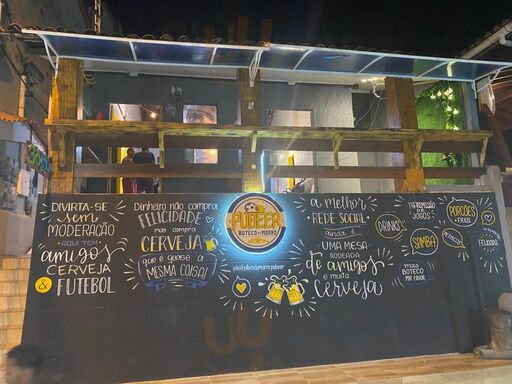 DIVIRTA-SE
sem
MODERAÇÃO
AQUI TEM
amigos
CERVEJA
& FUTEBOL
Dinheiro não compra
FELICIDADE
mas compra
CERVEJA
que é quase a
MESMA COISA!
PUBEER
BOTECO DO MORRO
a melhor
REDE SOCIAL
ainda é
UMA MESA
RODEADA
de amigos
e muita
cerveja
DRINKS
TRANSMISSÃO
DE JOGOS
SAMBA
MAIS
BOTECO
POR FAVOR
PORÇÕES
FEIJOADA